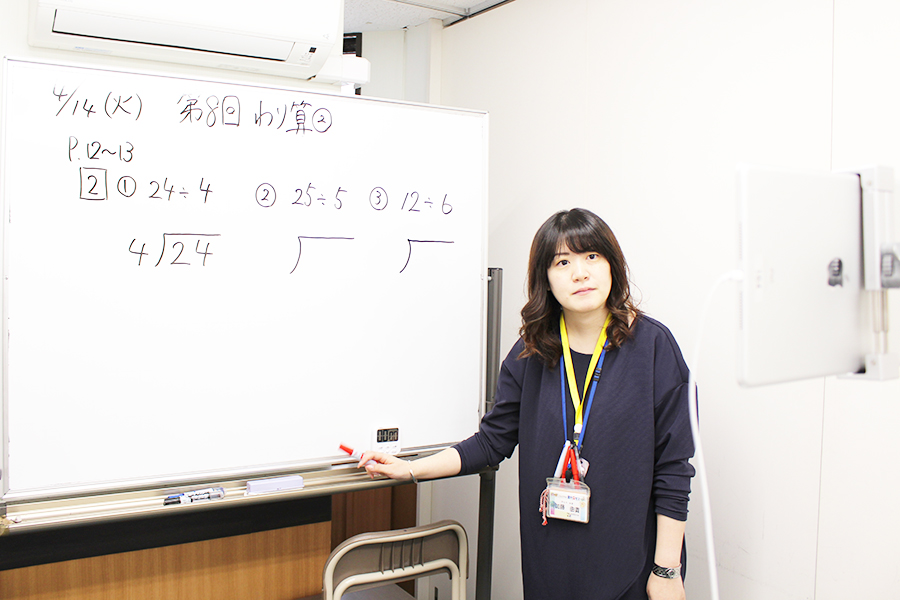 4/14(火) 第8回 わり算②
P.12~13
2 ① 24÷4 ② 25÷5 ③ 12÷6
4 24